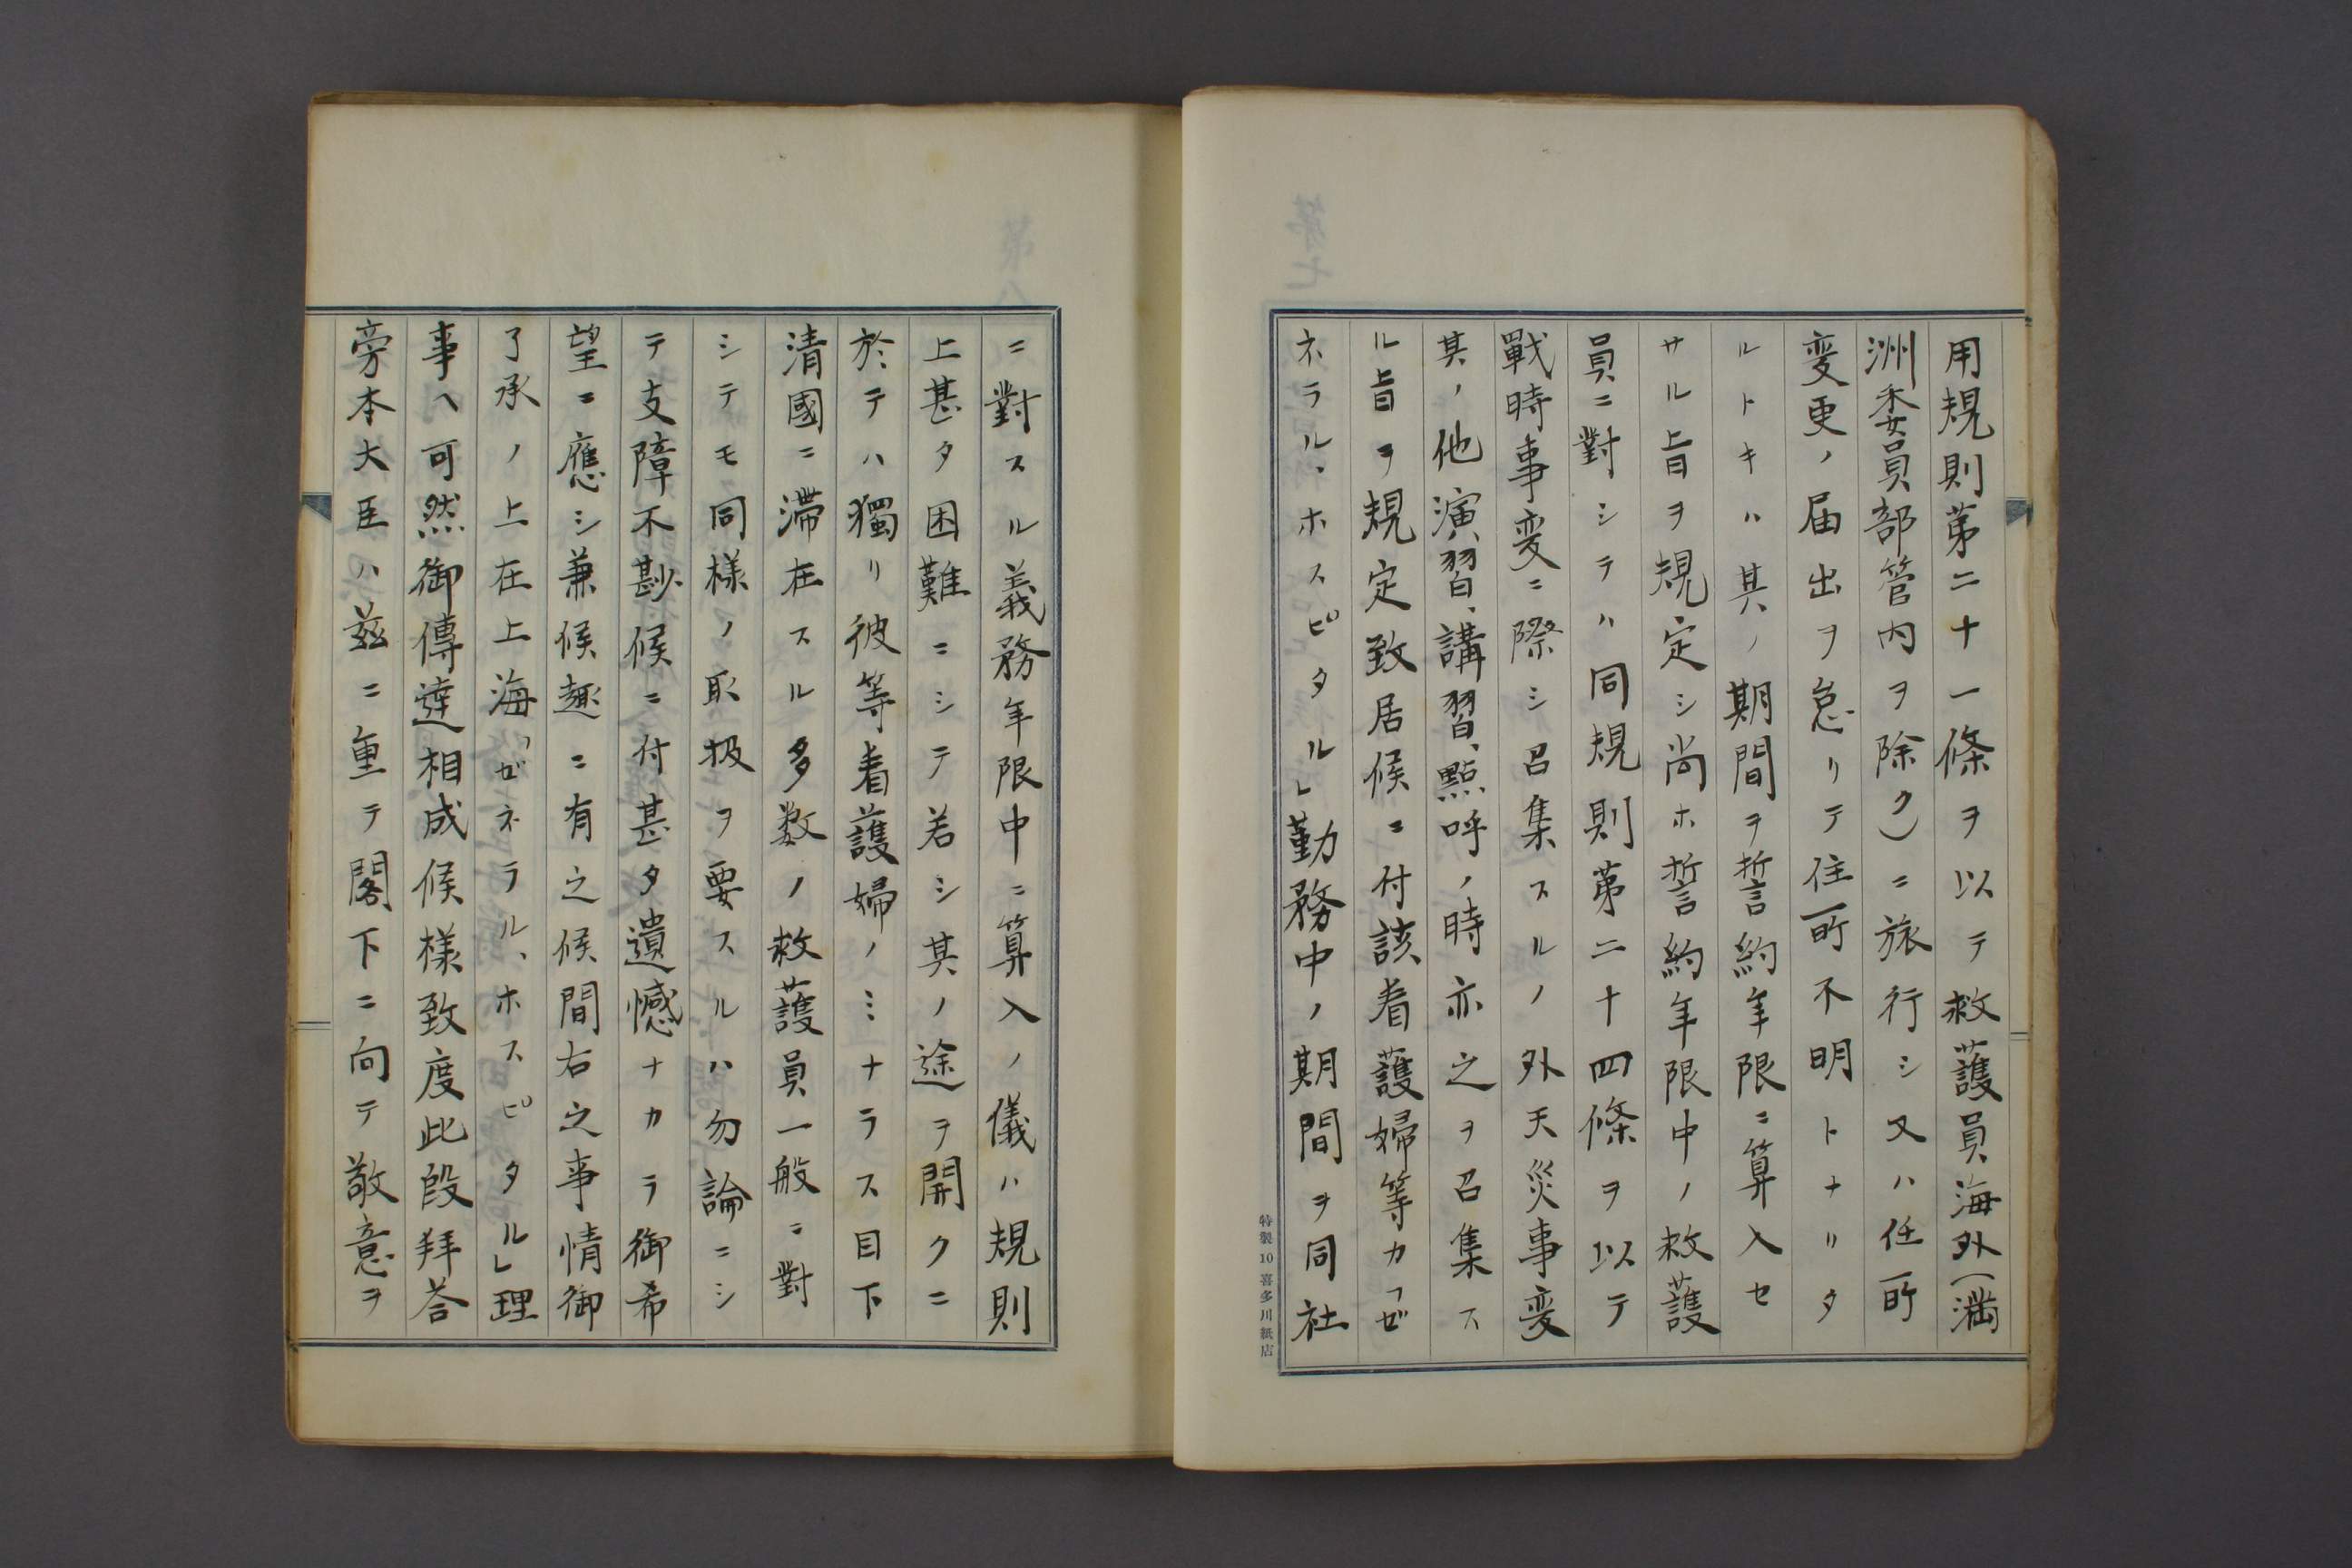 用規則第二十一條ヲ以テ救護員海外(満
洲委員部管内ヲ除ク)ニ旅行シ又ハ任所
変更ノ届出ヲ怠リテ住所不明トナリタ
ルトキハ其ノ期間ヲ誓約年限ニ算入セ
サル旨ヲ規定シ尚ホ誓約年限中ノ救護
員ニ對シテハ同規則第二十四條ヲ以テ
戰時事変ニ際シ召集スルノ外天災事変
其ノ他演習、講習、點呼ノ時亦之ヲ召集ス
ル旨ヲ規定致居候ニ付該看護婦等カ「ゼ
ネラル、ホスピタル」勤務中ノ期間ヲ同社
特製10喜多川紙店
ニ對スル義務年限中ニ算入ノ儀ハ規則
上甚タ困難ニシテ若シ其ノ途ヲ開クニ
於テハ獨リ彼等看護婦ノミナラス目下
清國ニ滞在スル多数ノ救護員一般ニ對
シテモ同様ノ取扱ヲ要スルハ勿論ニシ
テ支障不尠候ニ付甚タ遺憾ナカラ御希
望ニ應シ兼候趣ニ有之候間右之事情御
了承ノ上在上海「ゼネラル、ホスピタル」理
事ヘ可然御傳達相成候様致度此段拜答
旁本大臣ハ茲ニ重テ閣下ニ向テ敬意ヲ